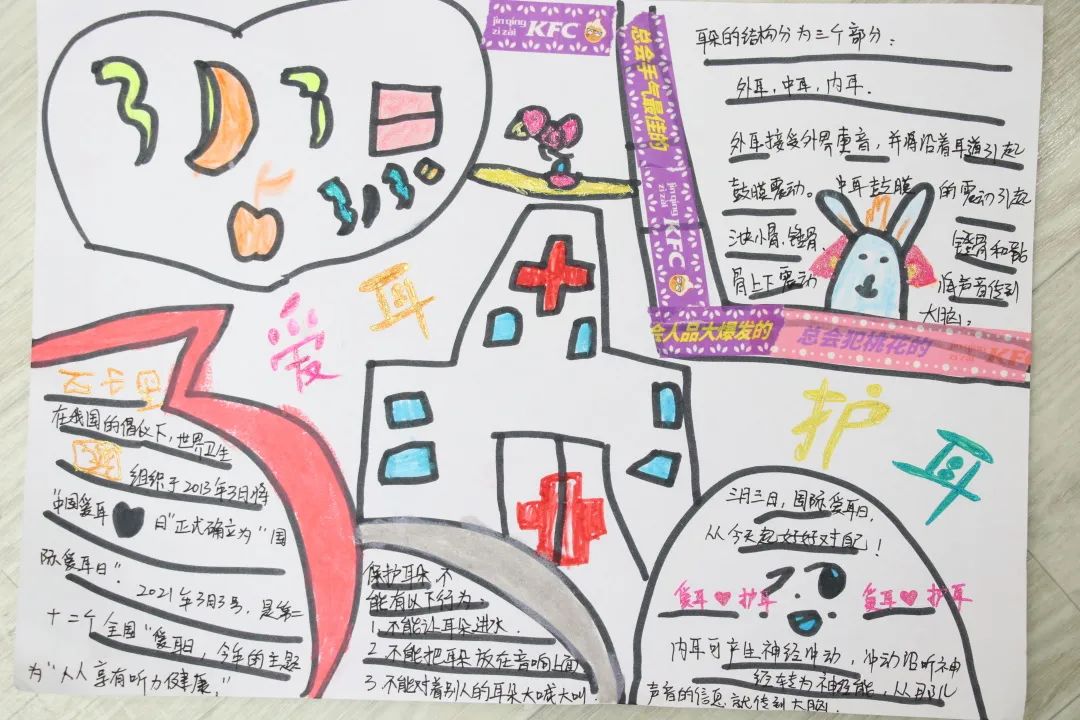 jinqing
zizai KFC
总会手气最佳的
jinqing
zizai KFC
会人品大爆发的
总会犯桃花的
KFC
耳朵的结构分为三个部分:
外耳,中耳,内耳.
外耳接受外界
音,并将沿着耳道引起
鼓膜震动。中耳鼓膜
的震动引起
小骨,锤骨,
镫骨和
骨上下震动
将声音传到
大脑。
爱耳
护耳
在我国的倡仪下,世界卫生
组织于2013年3日将
"中国爱耳
日"正式确立为"国
际爱耳日".
2021年3月3号,是第二
十二个全国"爱耳日,今年的主题
为"人人享有听力健康."
保护耳朵,不
能有以下行为:
1.不能让耳朵进水.
2.不能把耳朵放在音响上面
3.不能对着别人的耳朵大喊大叫.
三月三日,国际爱耳日,
从今天起好好对自己!
爱耳 护耳
爱耳 护耳
内耳可产生神经冲动,冲动沿听神
经转为神经能,从那儿
声音的信息就传到大脑.